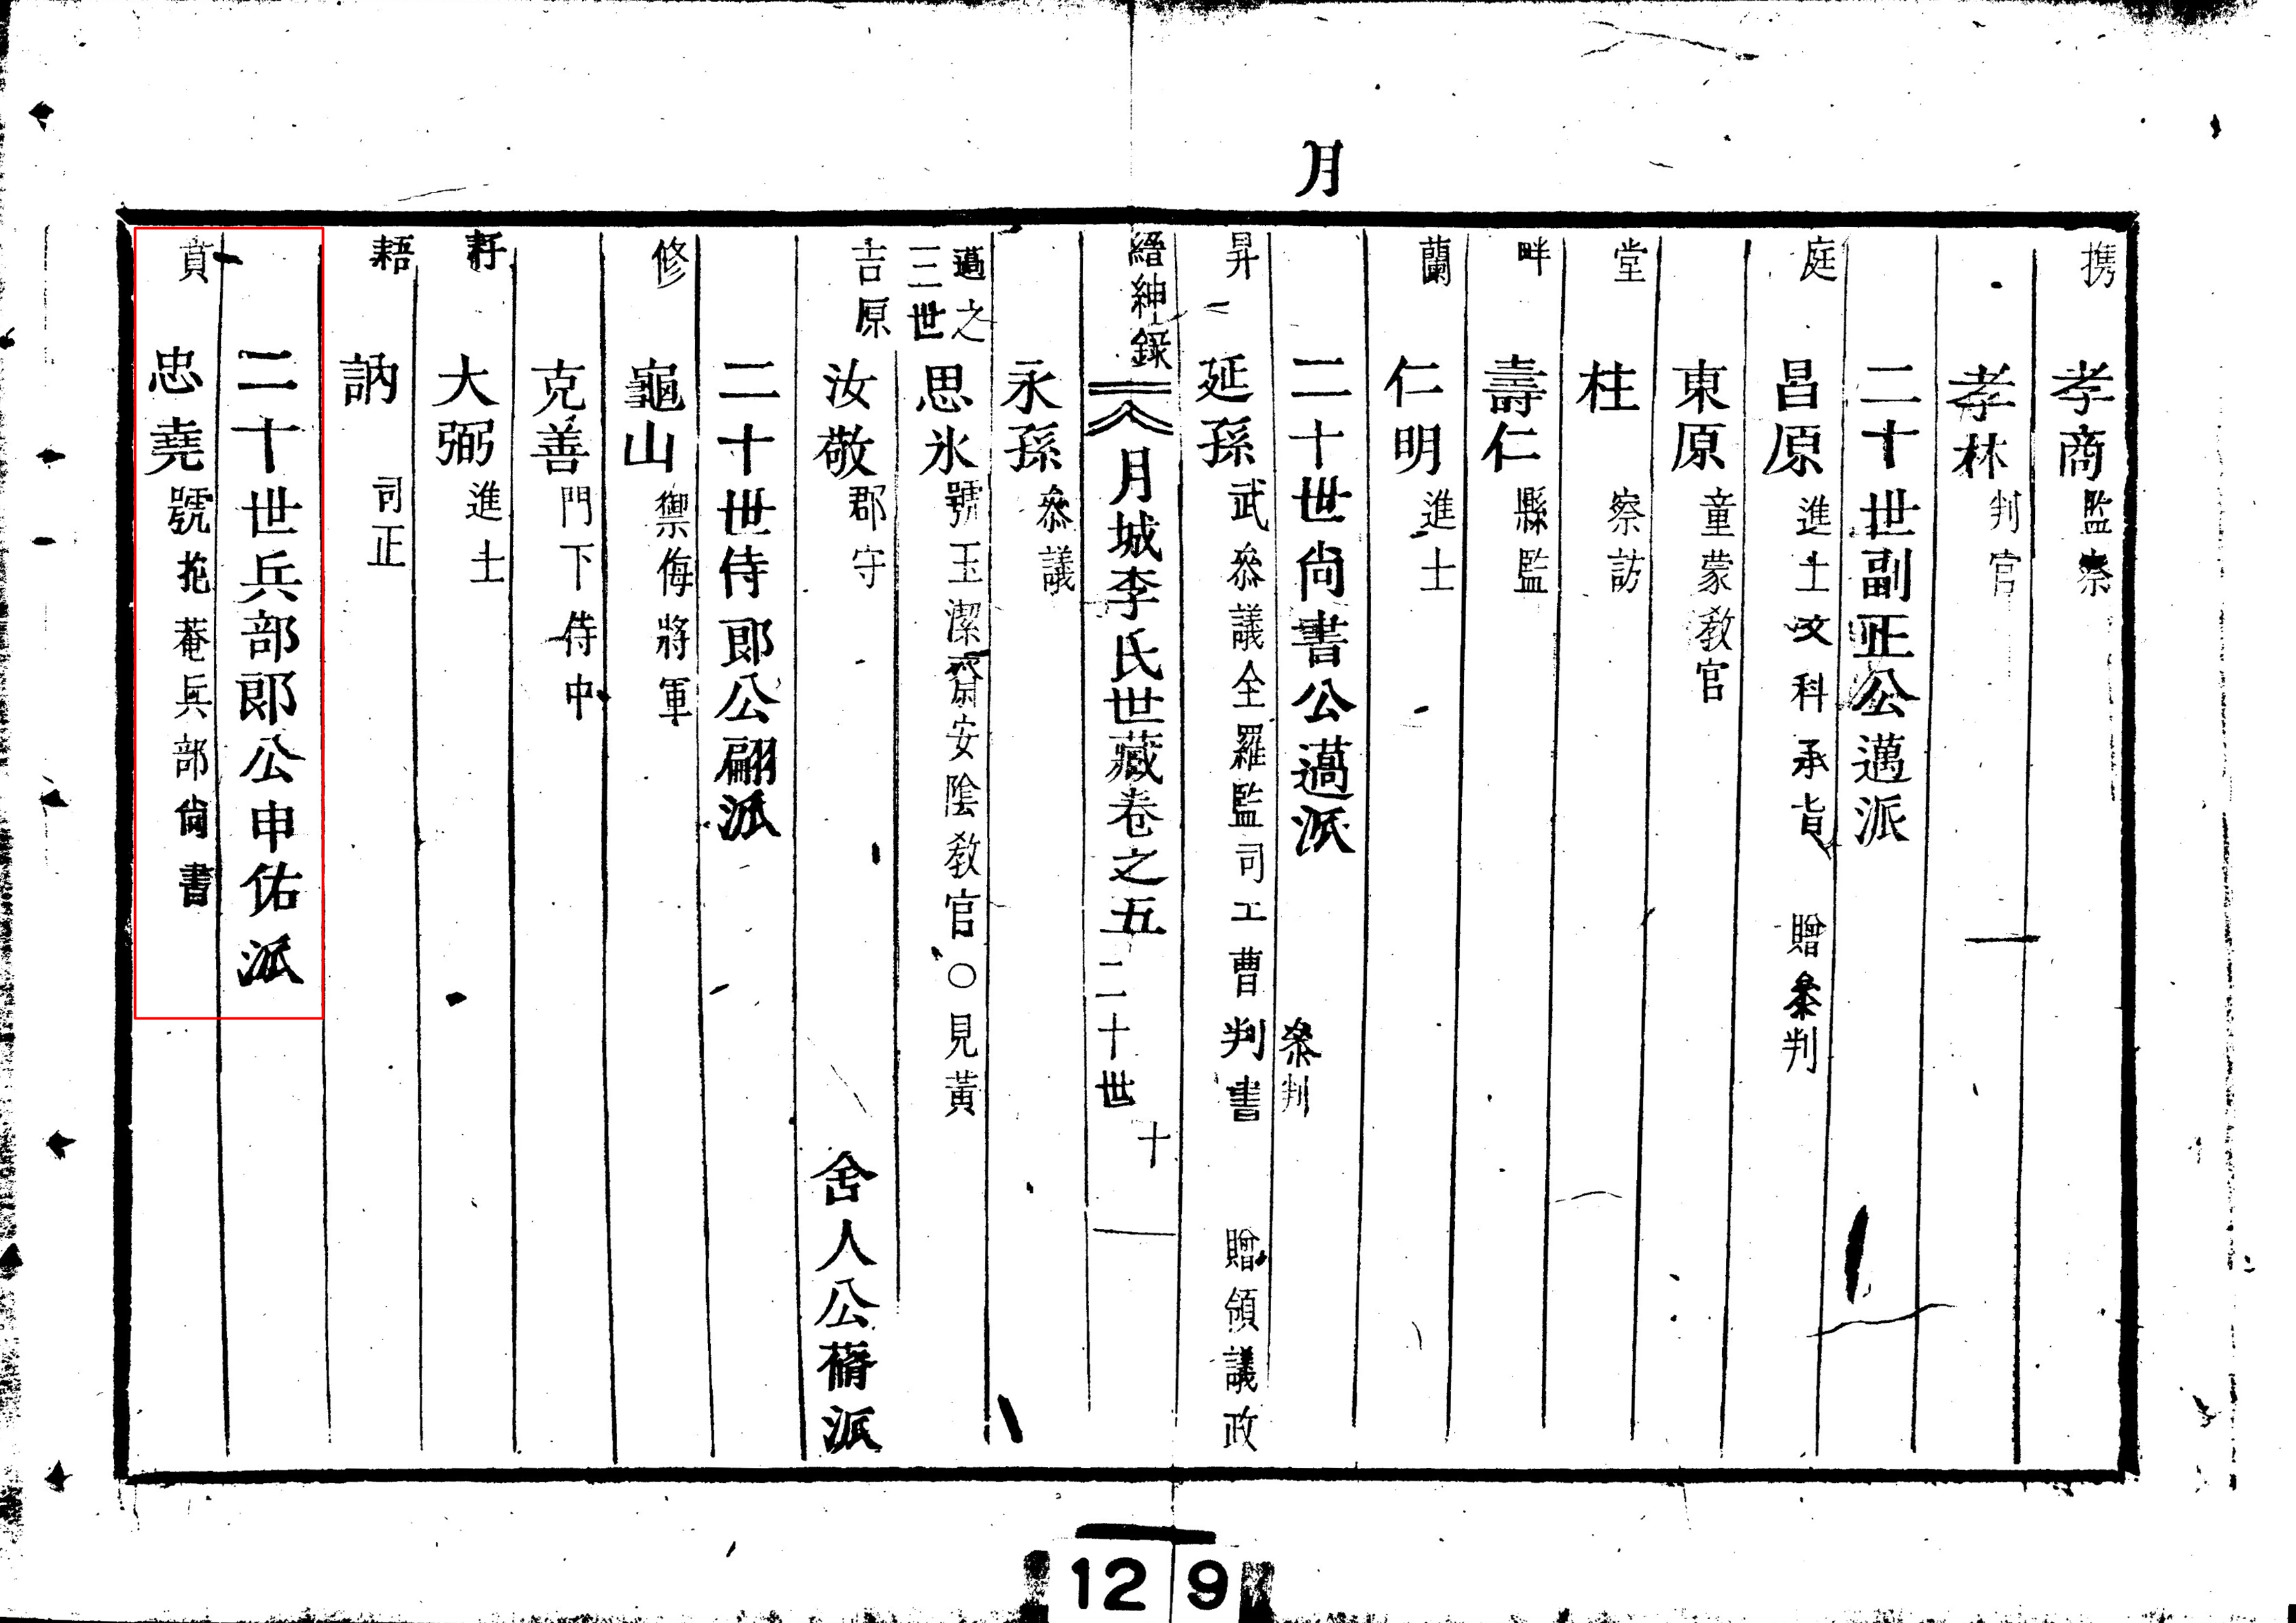 月
携 孝商 監察
孝林 判官
二十世副正公邁派
庭 昌原 進士文科承旨 贈參判
東原 童蒙敎官
堂 桂 察訪
畔 壽仁 縣監
蘭 仁明 進士
二十世尙書公薖派 參判
昇 延孫 武參議全羅監司工曹判書 贈領議政
縉紳錄 月城李氏世藏卷之五 二十世 十
永孫 參議
薖之三世 思氷 號玉潔齋安陰敎官○見黃
吉原 汝敬 郡守 舍人公蓨派
二十世侍郞公翩派
修 龜山 禦侮將軍
克善 門下侍中
耔 大弼 進士
訥 司正
二十世兵部郞公申佑派
賁 忠堯 號菴兵部尙書
12 9